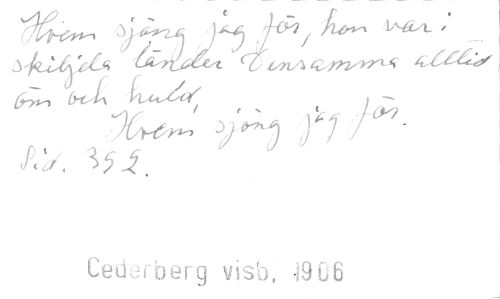 Hvem sjöng jag för, hon var i
skiljda länder densamma alltid
öm och huld,
Hvem sjöng jag för.
Sid. 392.
Cederberg visb, 1906